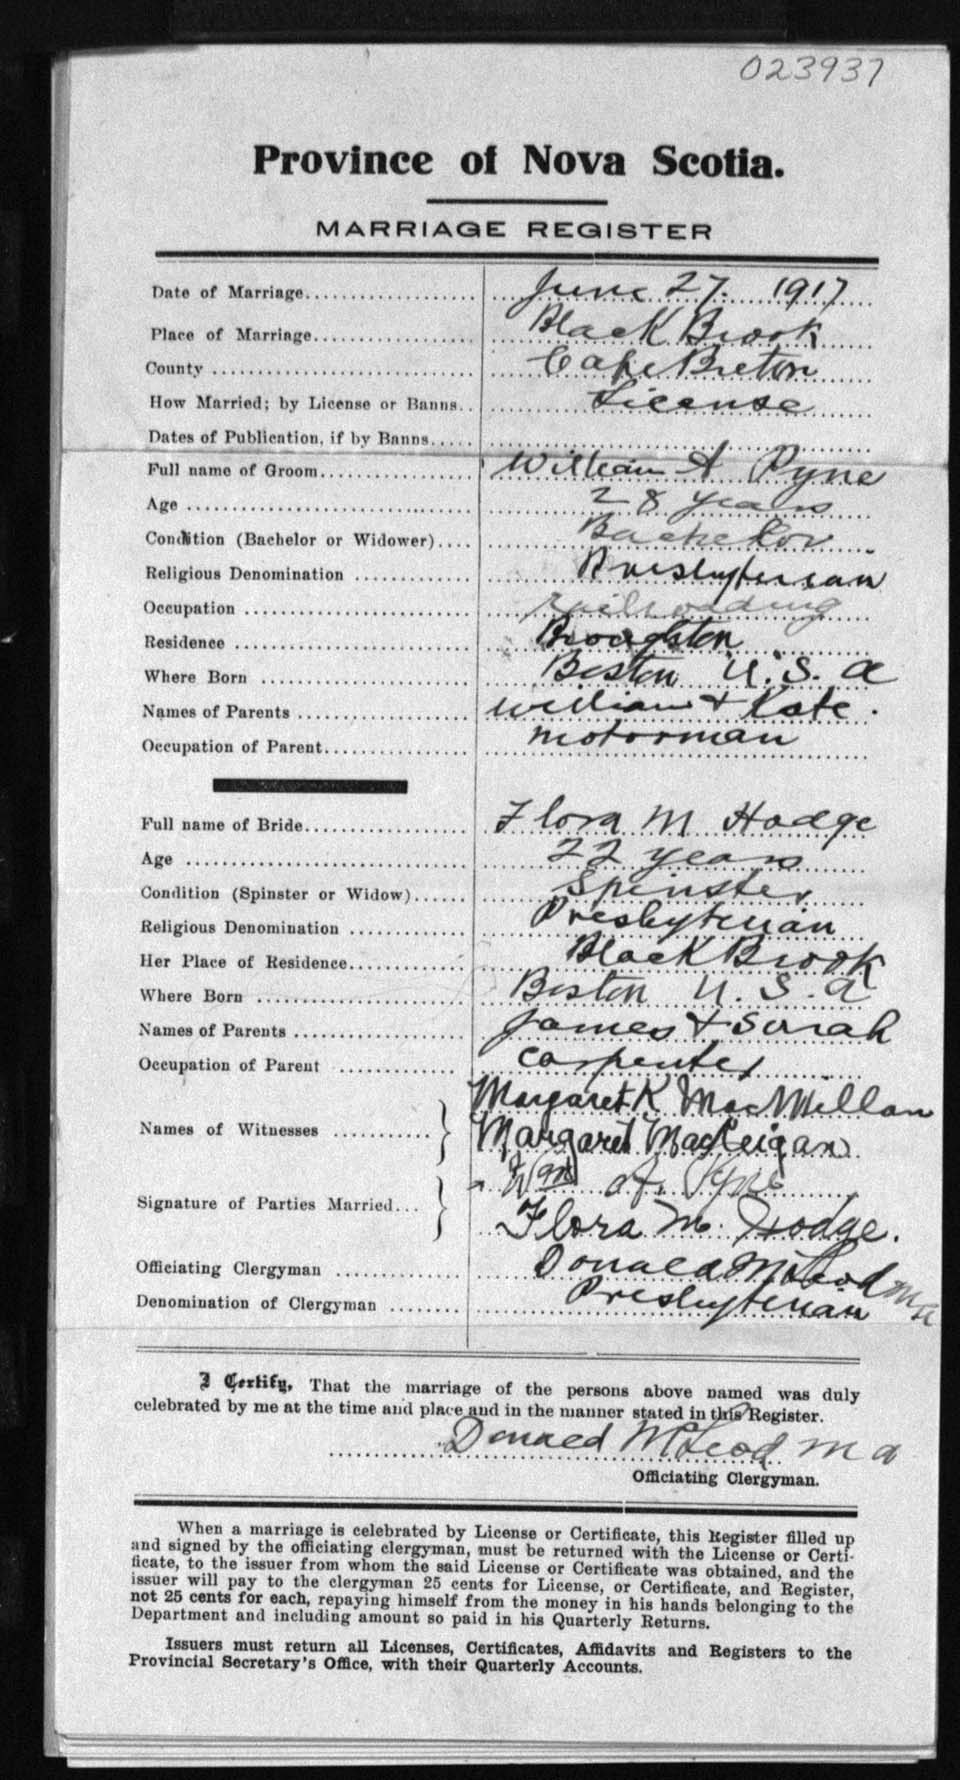 023937
Province of Nova Scotia.
MARRIAGE REGISTER
Date of Marriage.................... June 27. 1917
Place of Marriage................... Black Brook
County .............................. Cape Breton
How Married; by License or Banns.. License
Dates of Publication, if by Banns.....
Full name of Groom................... William A Pyne
Age .............................. 28 years
Condition (Bachelor or Widower).... Bachelor
Religious Denomination ............. Presbyterian
Occupation ......................... railroading
Residence .......................... Broughton
Where Born ......................... Boston U. S. a
Names of Parents ................... William + Kate.
Occupation of Parent................. motorman
Full name of Bride................... Flora M Hodge
Age .............................. 22 years
Condition (Spinster or Widow)...... Spinster
Religious Denomination ............. Presbyterian
Her Place of Residence.............. Black Brook
Where Born ......................... Boston U. S. a
Names of Parents ................... James + Sarah
Occupation of Parent ............... carpenter
Margaret K MacMillan
Names of Witnesses ........... Margaret MacKeigan
Wm A. Pyne
Signature of Parties Married...
Flora M. Hodge.
Officiating Clergyman ............. Donald McLeod ma
Denomination of Clergyman ........ Presbyterian
I Certify, That the marriage of the persons above named was duly
celebrated by me at the time and place and in the manner stated in this Register.
Donald McLeod m a
Officiating Clergyman.
When a marriage is celebrated by License or Certificate, this Register filled up
and signed by the officiating clergyman, must be returned with the License or Certi-
ficate, to the issuer from whom the said License or Certificate was obtained, and the
issuer will pay to the clergyman 25 cents for License, or Certificate, and Register,
not 25 cents for each, repaying himself from the money in his hands belonging to the
Department and including amount so paid in his Quarterly Returns.
Issuers must return all Licenses, Certificates, Affidavits and Registers to the
Provincial Secretary's Office, with their Quarterly Accounts.